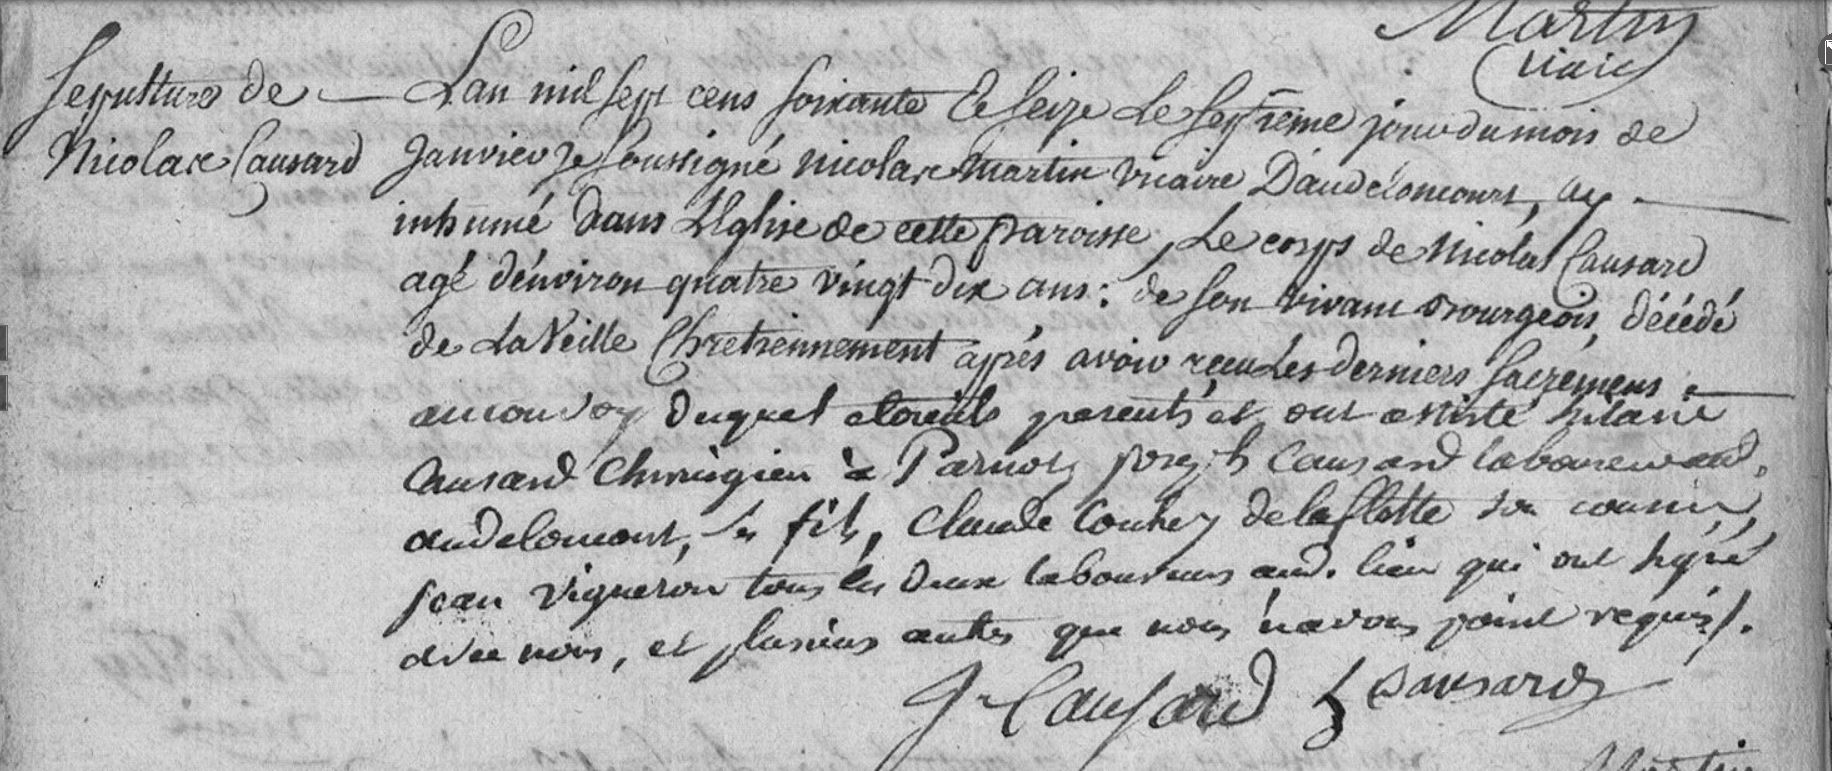 Martin
vicaire
Sepulture de
Nicolax Causard
Lan mil sept cens soixante Et seize Le septieme jour du mois de
Janvier Je soussigné nicolax Martin vicaire D'audeloncourt, ay
inhumé dans L'Eglise de cette paroisse, Le corps de Nicolas Causard
agé d'environ quatre vingt dix ans : de son vivant Bourgeois, décédé
de La Veille Chretiennement après avoir receu Les derniers sacremens.
au convoy duquel etoient presents et ont assisté hilaire
Causard Chirurgien à Parnot, joseph Causard laboureur aud.
audeloncourt, ses fils, Claude Couhey de la flotte son cousin,
jean vigneron tous les deux laboureurs aud. lieu qui ont signé
avec nous, et plusieurs autres que nous n'avons point requis /.
J Causard
Causard
Martin